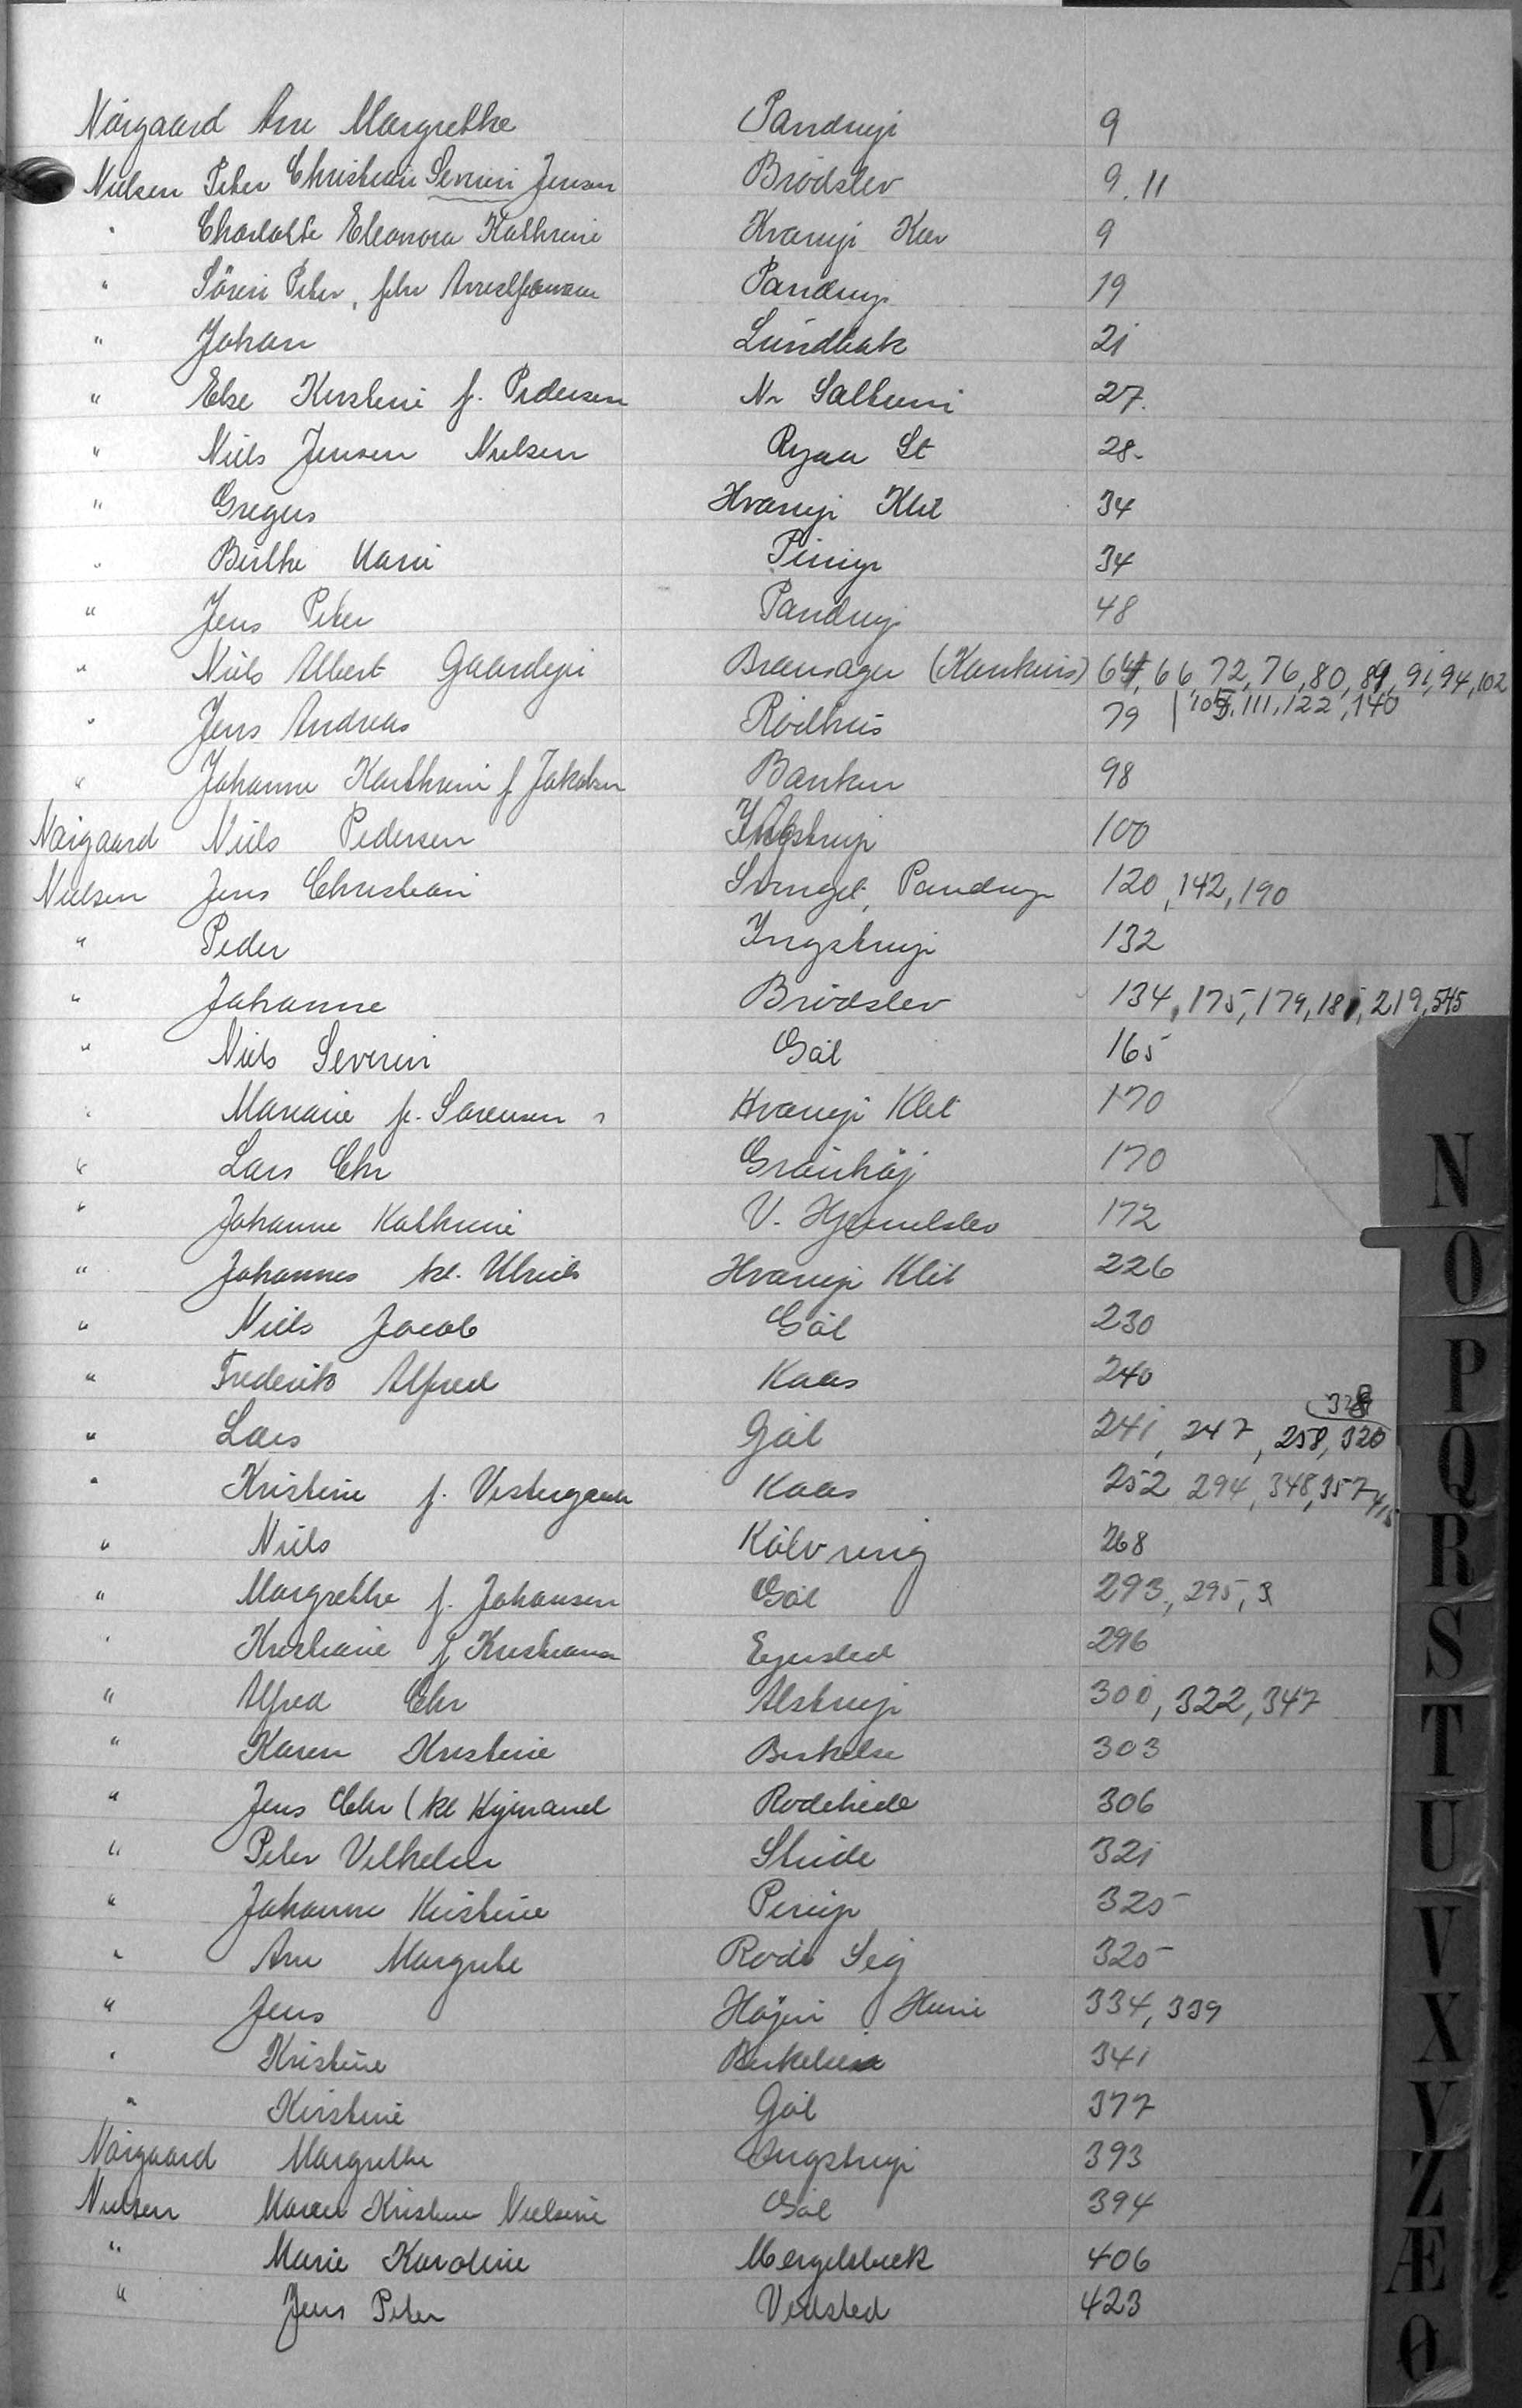 Nörgaard Ane Margrethe Pandrup 9
Nielsen Peter Christian Severin Jensen Brödslev 9. 11
" Charlotte Eleonora Kathrine Hvarup Kær 9
" Sören Peter, fhv Pandrup 19
" Johan Lundbak 21
" Else Kirstine f. Pedersen Nr Saltum 27.
" Niels Jensen Nielsen Ryaa St 28.
" Gregers Hvorup Klit 34
" Birthe Marie Pirup 34
" Jens Peter Pandrup 48
" Niels Albert Gaardepi Bransager (Kankuis) 64, 66 72, 76, 80, 89, 91, 94, 102
" Jens Andreas Rödhus 79 | 105, 111, 122, 140
" Johanne Kathrine f Jakobsen Banken 98
Nörgaard Niels Pedersen Ingstrup 100
Nielsen Jens Christian Svinget, Pandrup 120, 142, 190
" Peder Ingstrup 132
" Johanne Brödslev 134, 175, 179, 181, 219, 545
" Niels Severin Göl 165
" Mariane f. Sørensen Hvorup Klit 170
" Lars Chr Grönhöj 170
" Johanne Kathrine V. Hjermelslev 172
" Johannes kl. Ulrich Hvorup Klit 226
" Niels Jacob Göl 230
" Frederik Alfred Kaas 240
328
" Lars Göl 241, 247, 258, 320
" Kristine f. Vestergaard Kaas 252 294, 348, 357 415
" Niels Kölvring 268
" Margrethe f. Johansen Göl 293, 295,
" Kristiane f Kristiansen Egersted 296
" Alfred Chr Alstrup 300, 322, 347
" Karen Kristine Birkelse 303
" Jens Chr (kl Kjimand Rodehede 306
" Peter Vilhelm Stride 321
" Johanne Kristine Pirup 325
" Ane Margrete Röde Sig 325
" Jens Höjen Hune 334, 339
" Kristine Birkelse 341
" Kirstine Göl 377
Nörgaard Margrethe Ingstrup 393
Nielsen Maren Kristine Nielsine Göl 394
" Marie Karoline Mergelsbæk 406
" Jens Peter Vedsted 423
N
O
P
Q
R
S
T
U
V
X
Y
Z
Æ
Ø